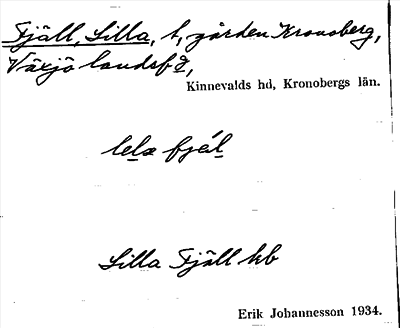 Fjäll, Lilla, t, gården Kronoberg,
Växjö landsfg,
Kinnevalds hd, Kronobergs län.
lela fjäl
Lilla Fjäll kb
Erik Johannesson 1934.